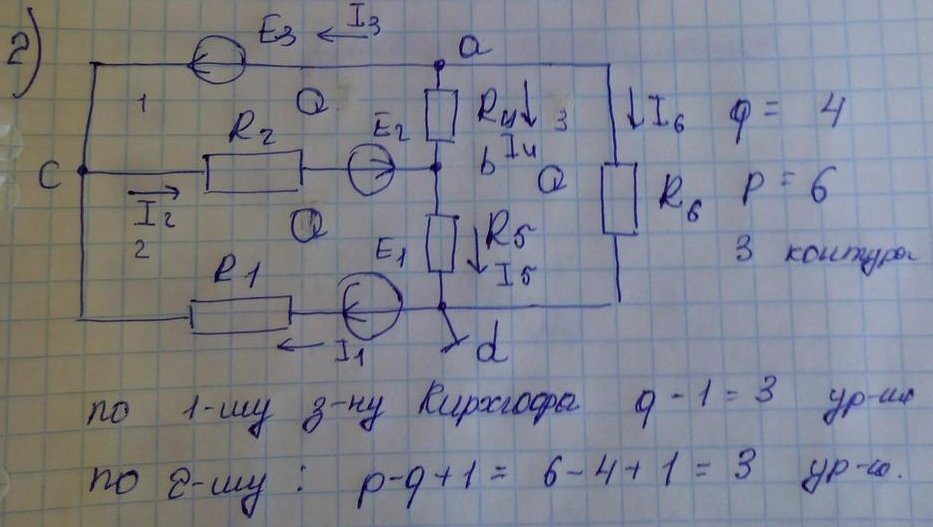 2)
E3 I3 a
1 R2 E2 R4 3 I6 q = 4
C b I4 R6 p = 6
I2 R5
2 I5 3 контура
R1 E1
I1 d
по 1-му з-ну Кирхгофа q - 1 = 3 ур-ия
по 2-му : p-q+1 = 6-4+1 = 3 ур-ю.